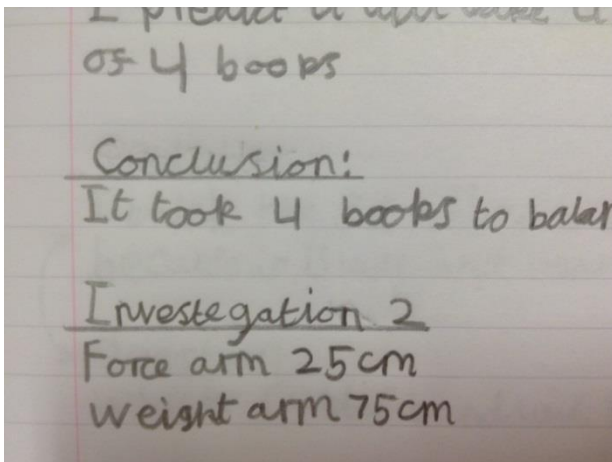 I predict it will take a
of 4 books
Conclusion:
It took 4 books to balan
Investegation 2
Force arm 25cm
Weight arm 75cm